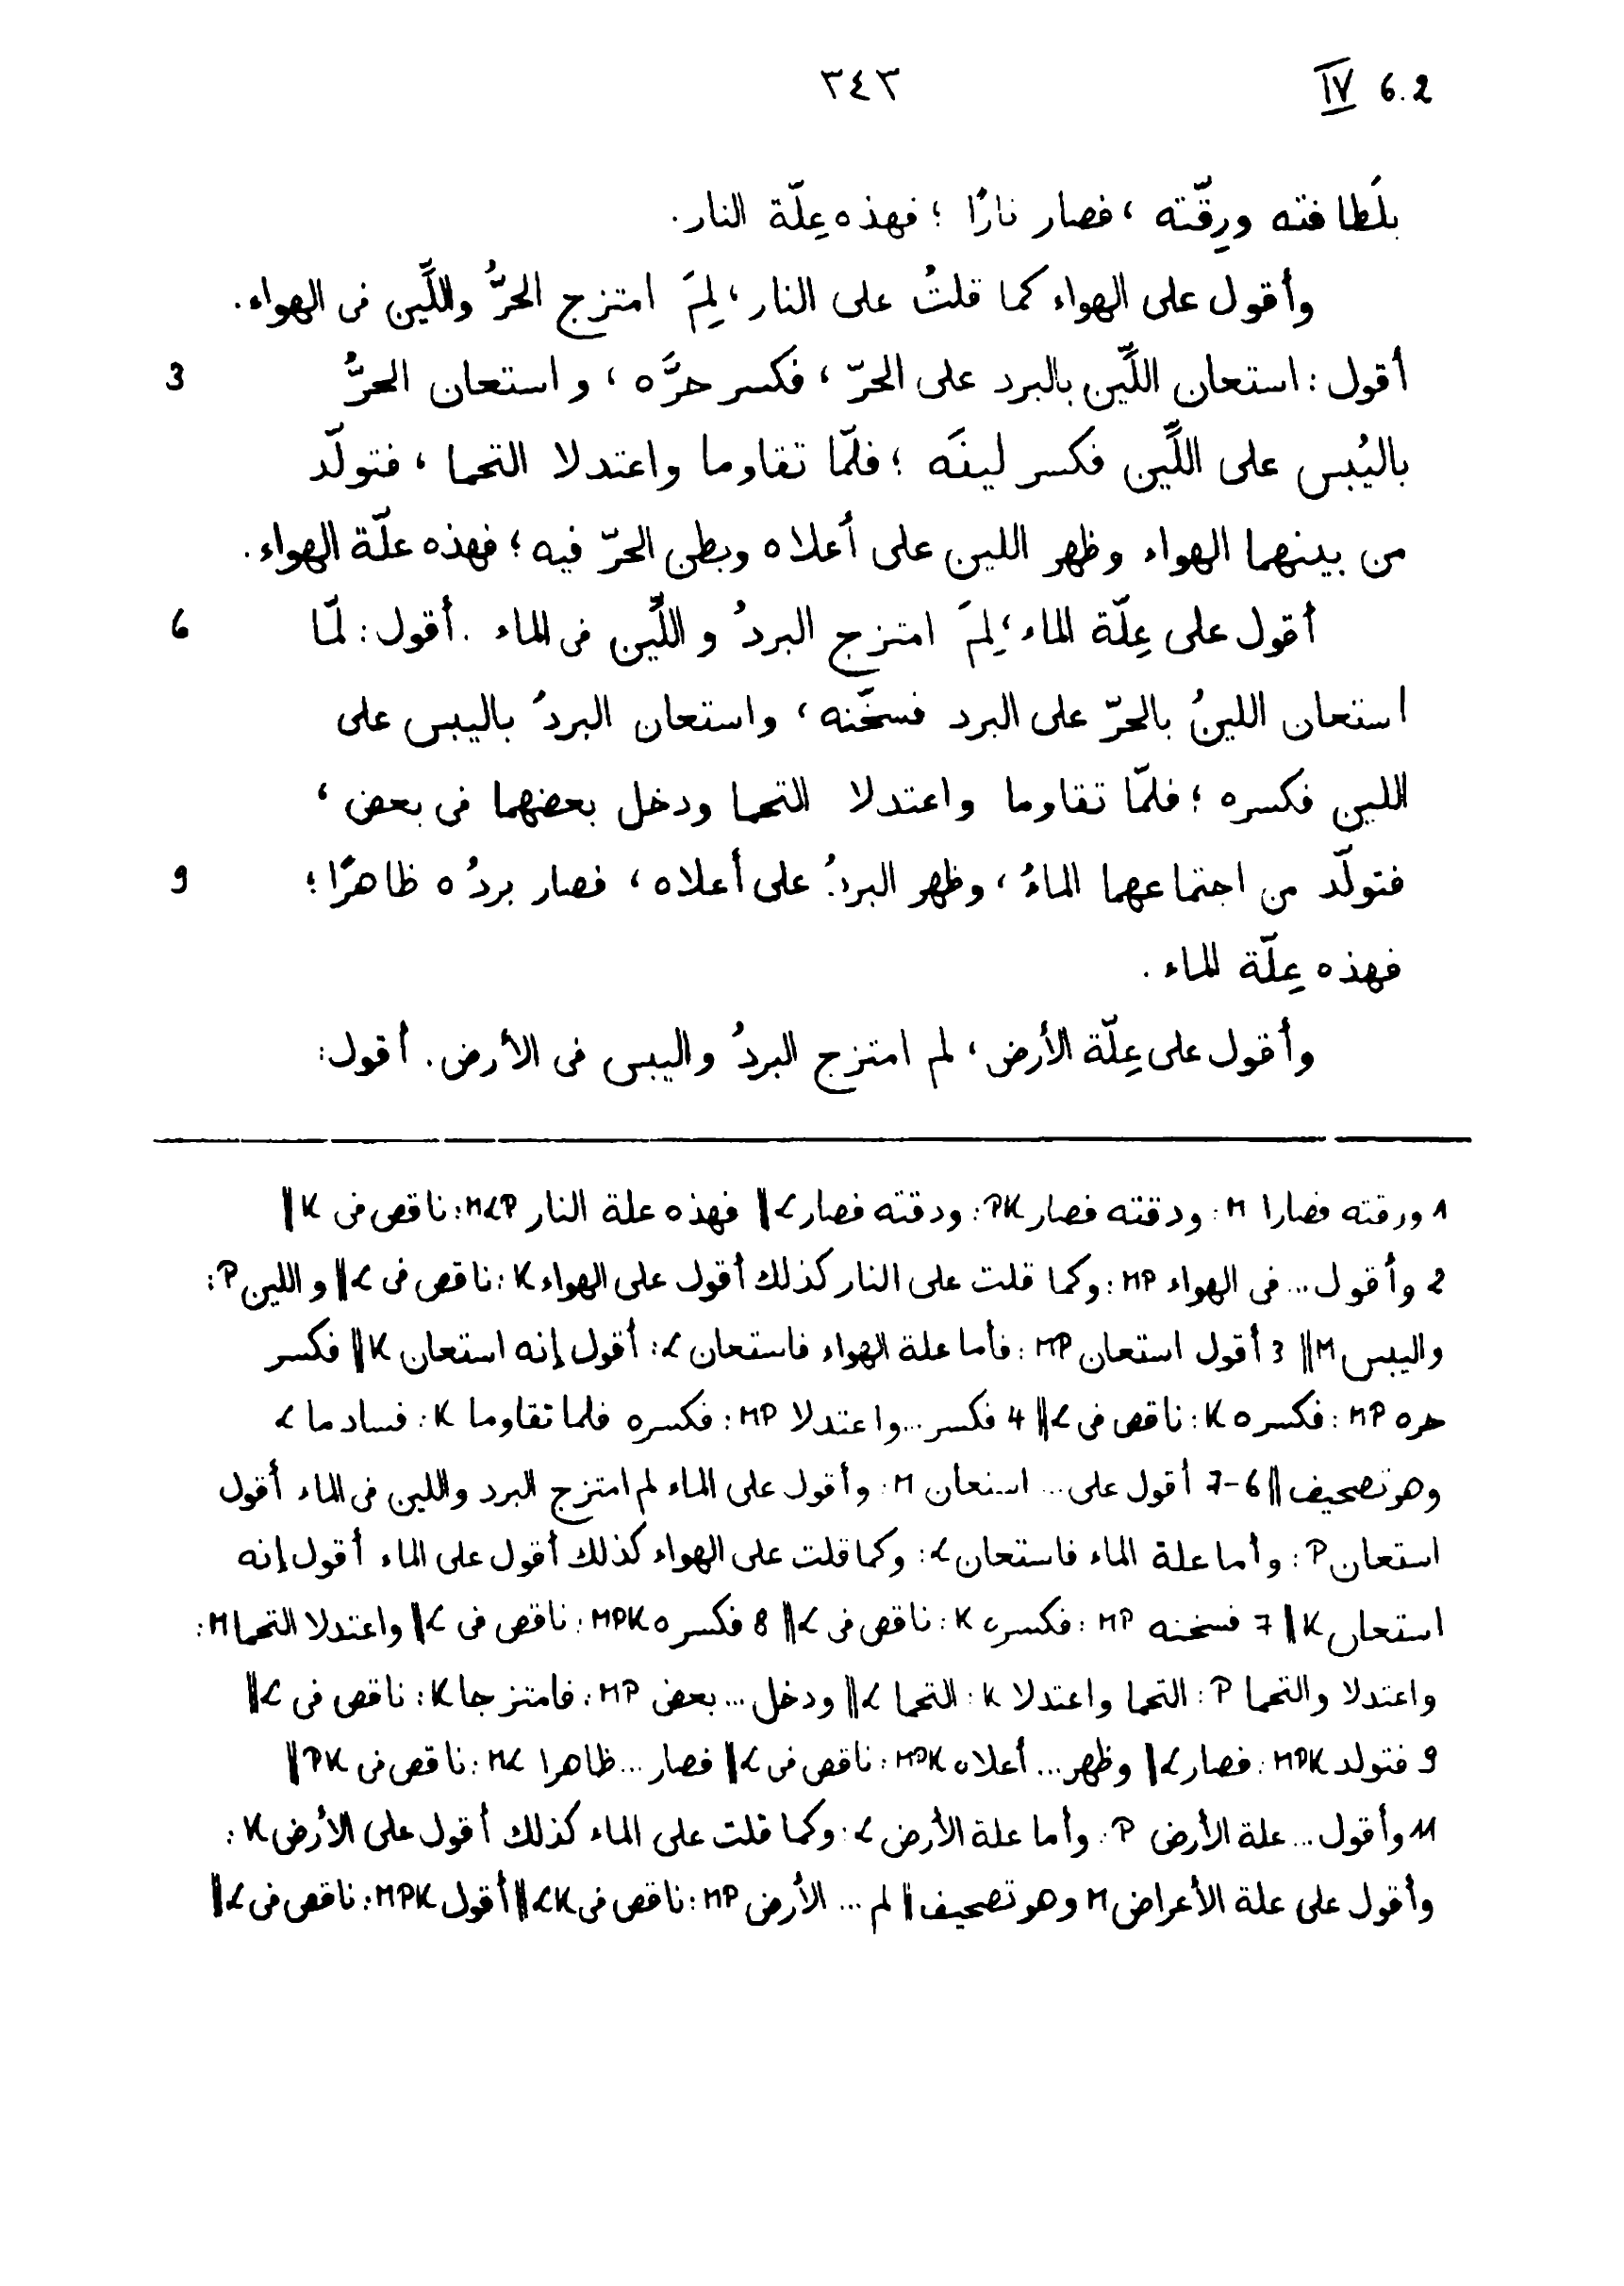 ٣٤٣ IV 6.2
بلَطافته ورِقّته ، فصار نارًا ؛ فهذه عِلّة النار .
وأقول على الهواء كما قلتُ على النار ، لِمَ امتزج الحرُّ واللَّين فى الهواء .
أقول : استعان اللَّين بالبرد على الحرّ ، فكسر حرَّه ، واستعان الحرُّ 3
باليُبس على اللَّين فكسر لينَه ؛ فلمّا تقاوما واعتدلا التحما ، فتولّد
من بينهما الهواء وظهر اللين على أعلاه وبطن الحرّ فيه ؛ فهذه علّة الهواء .
أقول على عِلّة الماء ، لِمَ امتزج البردُ واللَّين فى الماء . أقول : لمّا 6
استعان اللينُ بالحرّ على البرد فسخّنه ، واستعان البردُ باليبس على
اللين فكسره ؛ فلمّا تقاوما واعتدلا التحما ودخل بعضهما فى بعض ،
فتولّد من اجتماعهما الماءُ ، وظهر البردُ على أعلاه ، فصار بردُه ظاهرًا ؛ 9
فهذه عِلّة الماء .
وأقول على عِلّة الأرض ، لم امتزج البردُ واليبس فى الأرض . أقول :
1 ورقته فصارا M : ودقته فصار PK : ودقته فصار L || فهذه علة النار MLP : ناقص فى K ||
2 وأقول ... فى الهواء MP : وكما قلت على النار كذلك أقول على الهواء K : ناقص فى L || واللين P :
واليبس M || 3 أقول استعان MP : فأما علة الهواء فاستعان L : أقول إنه استعان K || فكسر
حره MP : فكسره K : ناقص فى L || 4 فكسر ... واعتدلا MP : فكسره فلما تقاوما K : فسادما L
وهو تصحيف || 6-7 أقول على ... استعان M : وأقول على الماء لم امتزج البرد واللين فى الماء أقول
استعان P : وأما علة الماء فاستعان L : وكما قلت على الهواء كذلك أقول على الماء أقول إنه
استعان K || 7 فسخنه MP : فكسره K : ناقص فى L || 8 فكسره MPK : ناقص فى L || واعتدلا التحما M :
واعتدلا والتحما P : التحما واعتدلا K : التحما L || ودخل ... بعض MP : فامتزجا K : ناقص فى L ||
9 فتولد MPK : فصار L || وظهر ... أعلاه MPK : ناقص فى L || فصار ... ظاهرا ML : ناقص فى PK ||
11 وأقول ... علة الأرض P : وأما علة الأرض L : وكما قلت على الماء كذلك أقول على الأرض K :
وأقول على علة الأعراض M وهو تصحيف || لم ... الأرض MP : ناقص فى LK || أقول MPK : ناقص فى L ||